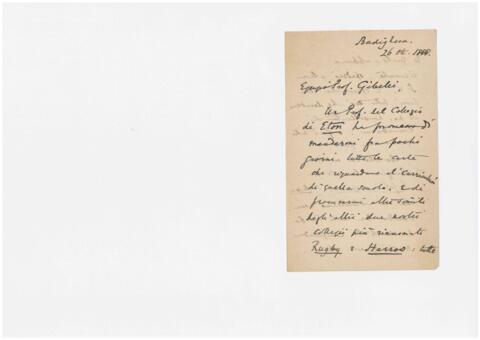 Bordighera.
26 Ott. 1888.
Egregio Prof. Gibelli,
Un Prof. del Collegio
di Eton ha promesso di
mandarmi fra pochi
giorni tutte le carte
che riguardano il
di quella scuola, e di
altre
degli altri due nostri
collegii più rinomati
Rugby e Harrow, tutte